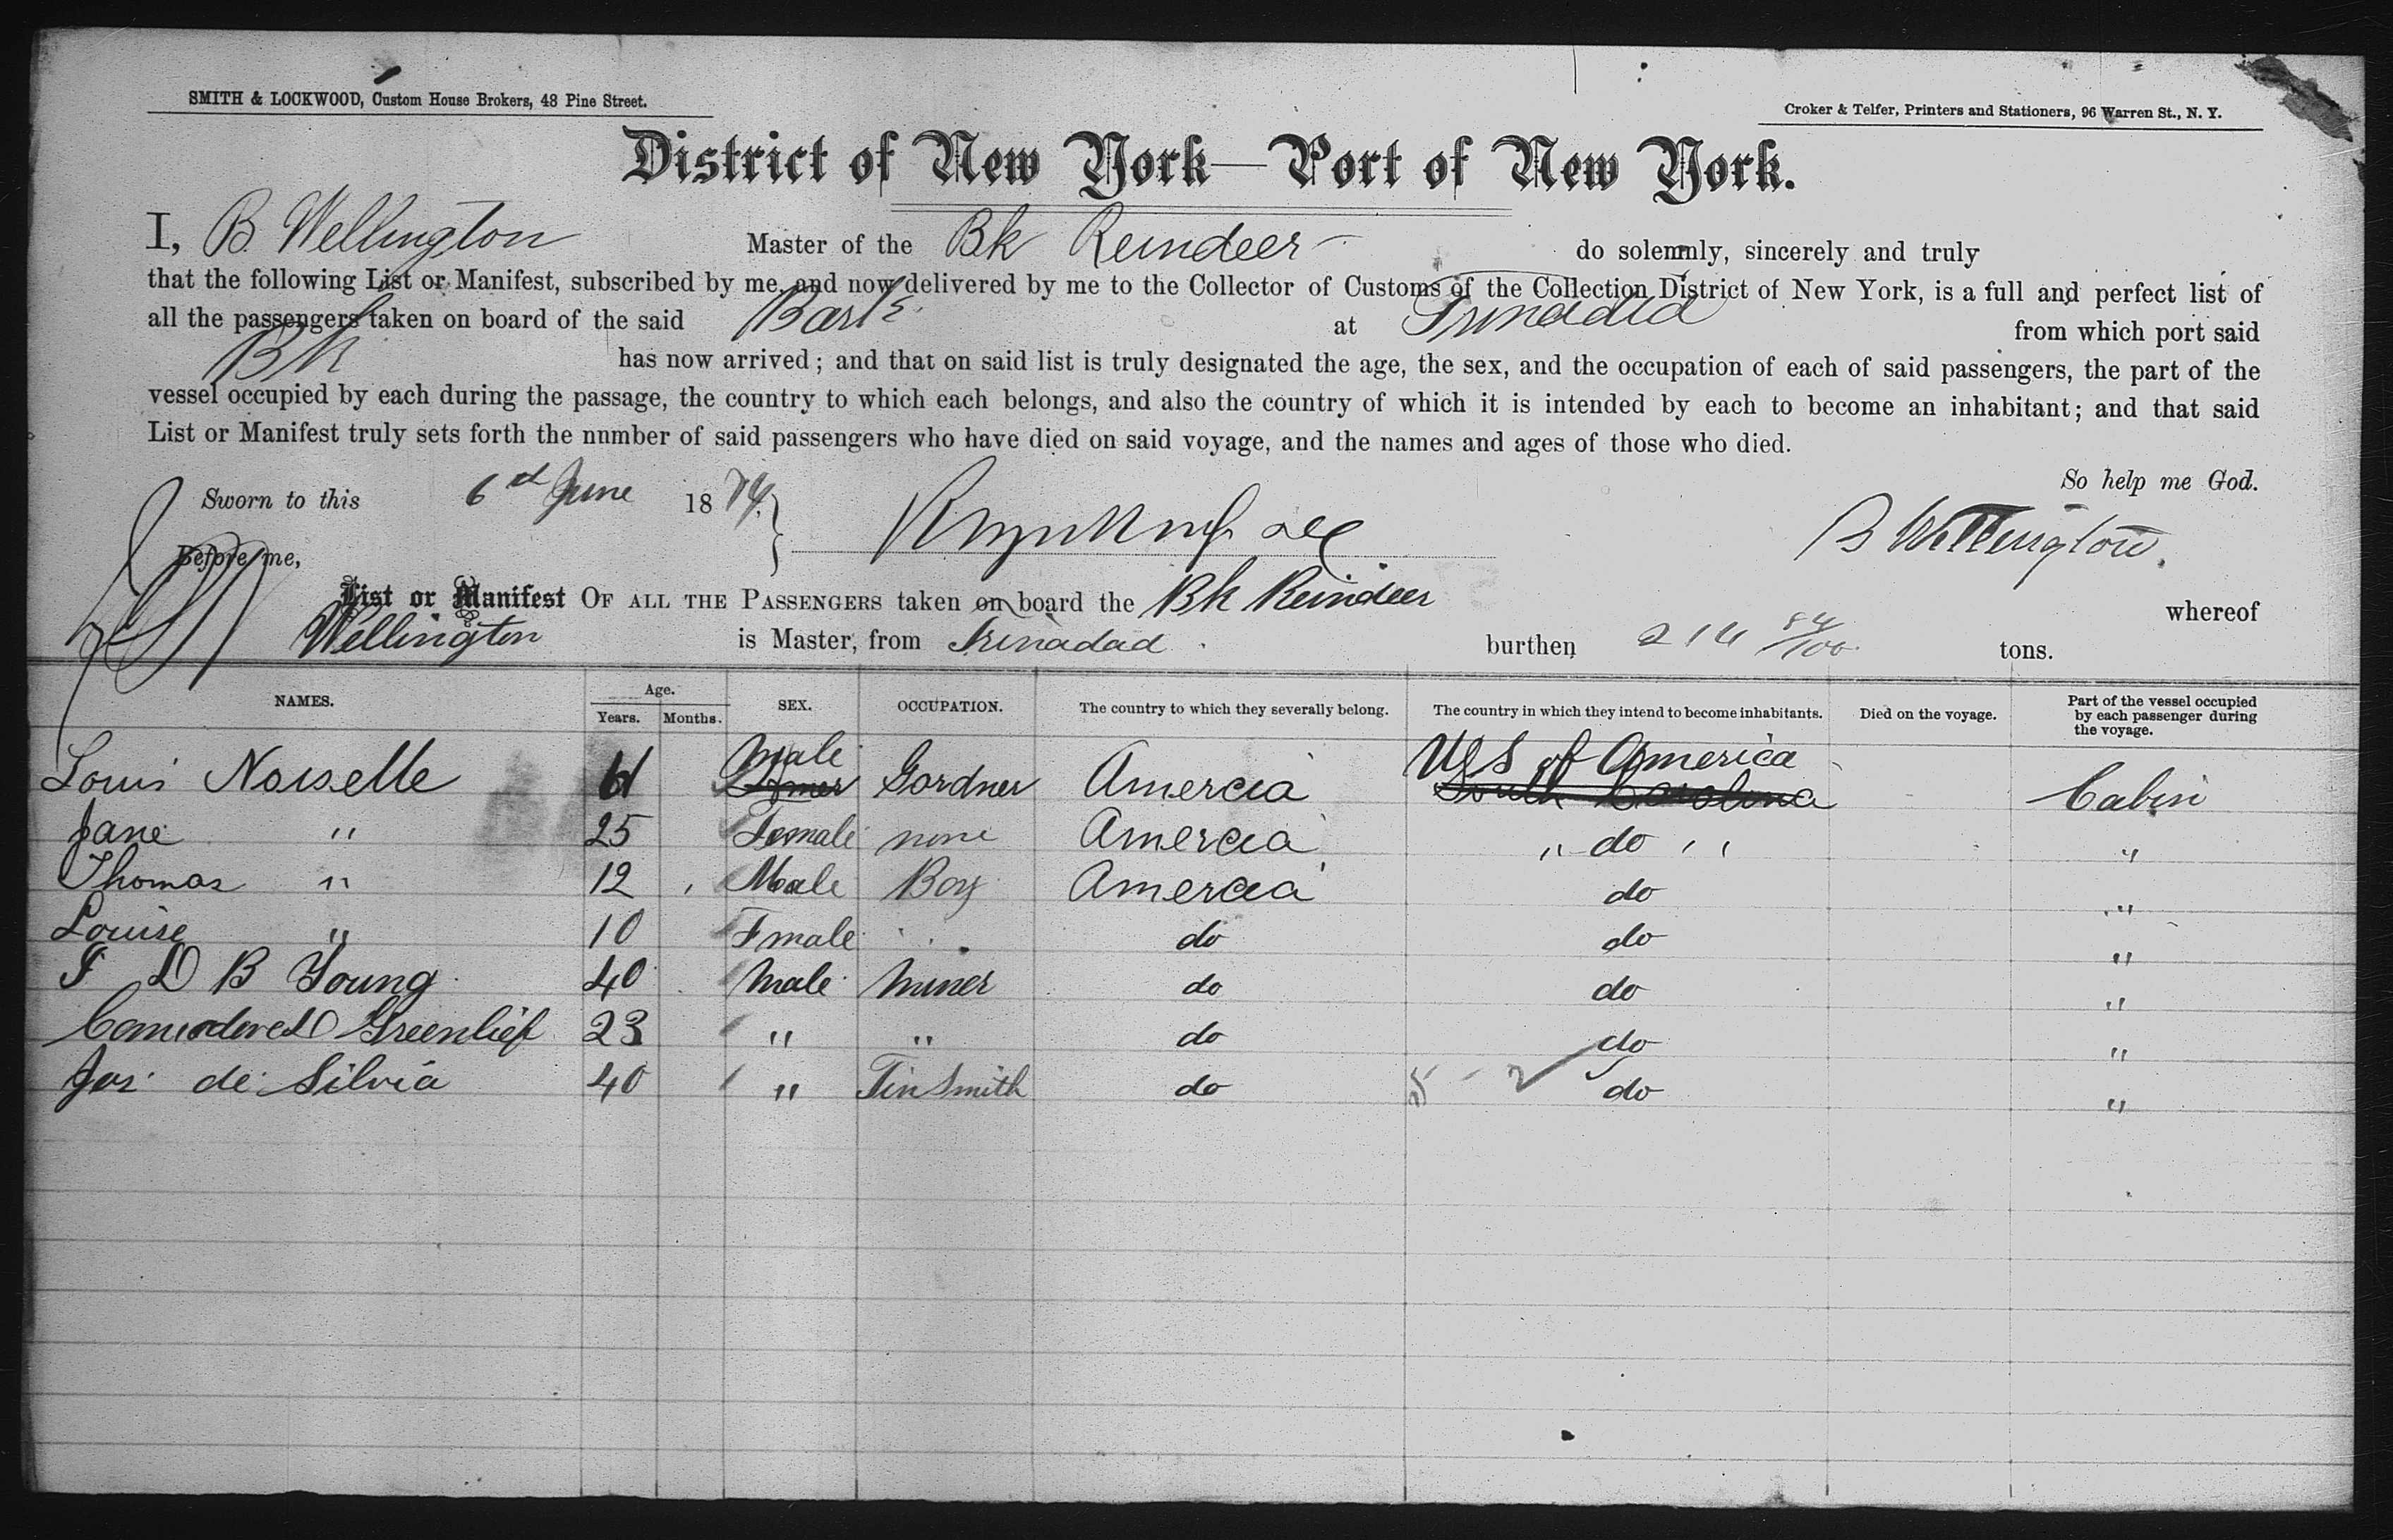 SMITH & LOCKWOOD, Custom House Brokers, 48 Pine Street.
Croker & Telfer, Printers and Stationers, 96 Warren St., N. Y.
District of New York—Port of New York.
I, B Wellington Master of the Bk Reindeer do solemnly, sincerely and truly
that the following List or Manifest, subscribed by me, and now delivered by me to the Collector of Customs of the Collection District of New York, is a full and perfect list of
all the passengers taken on board of the said Bark at Trinadad from which port said
Bk has now arrived; and that on said list is truly designated the age, the sex, and the occupation of each of said passengers, the part of the
vessel occupied by each during the passage, the country to which each belongs, and also the country of which it is intended by each to become an inhabitant; and that said
List or Manifest truly sets forth the number of said passengers who have died on said voyage, and the names and ages of those who died.
So help me God.
Sworn to this 6 June 1874
B Wellington.
Before me,
List or Manifest OF ALL THE PASSENGERS taken on board the Bk Reindeer whereof
Wellington is Master, from Trinadad burthen 214 84/100 tons.
NAMES. Age. Years. Months. SEX. OCCUPATION. The country to which they severally belong. The country in which they intend to become inhabitants. Died on the voyage. Part of the vessel occupied by each passenger during the voyage.
Louis Noiselle 61 Male Gordner Amercia U S of America South Carolina Cabin
Jane " 25 Female none Amercia " do " "
Thomas " 12 Male Boy Amercia do "
Louise " 10 Fmale do do "
D B Young 40 Male Miner do do "
Greenlief 23 " " do do "
Jos de Silvia 40 " Tin Smith do do "